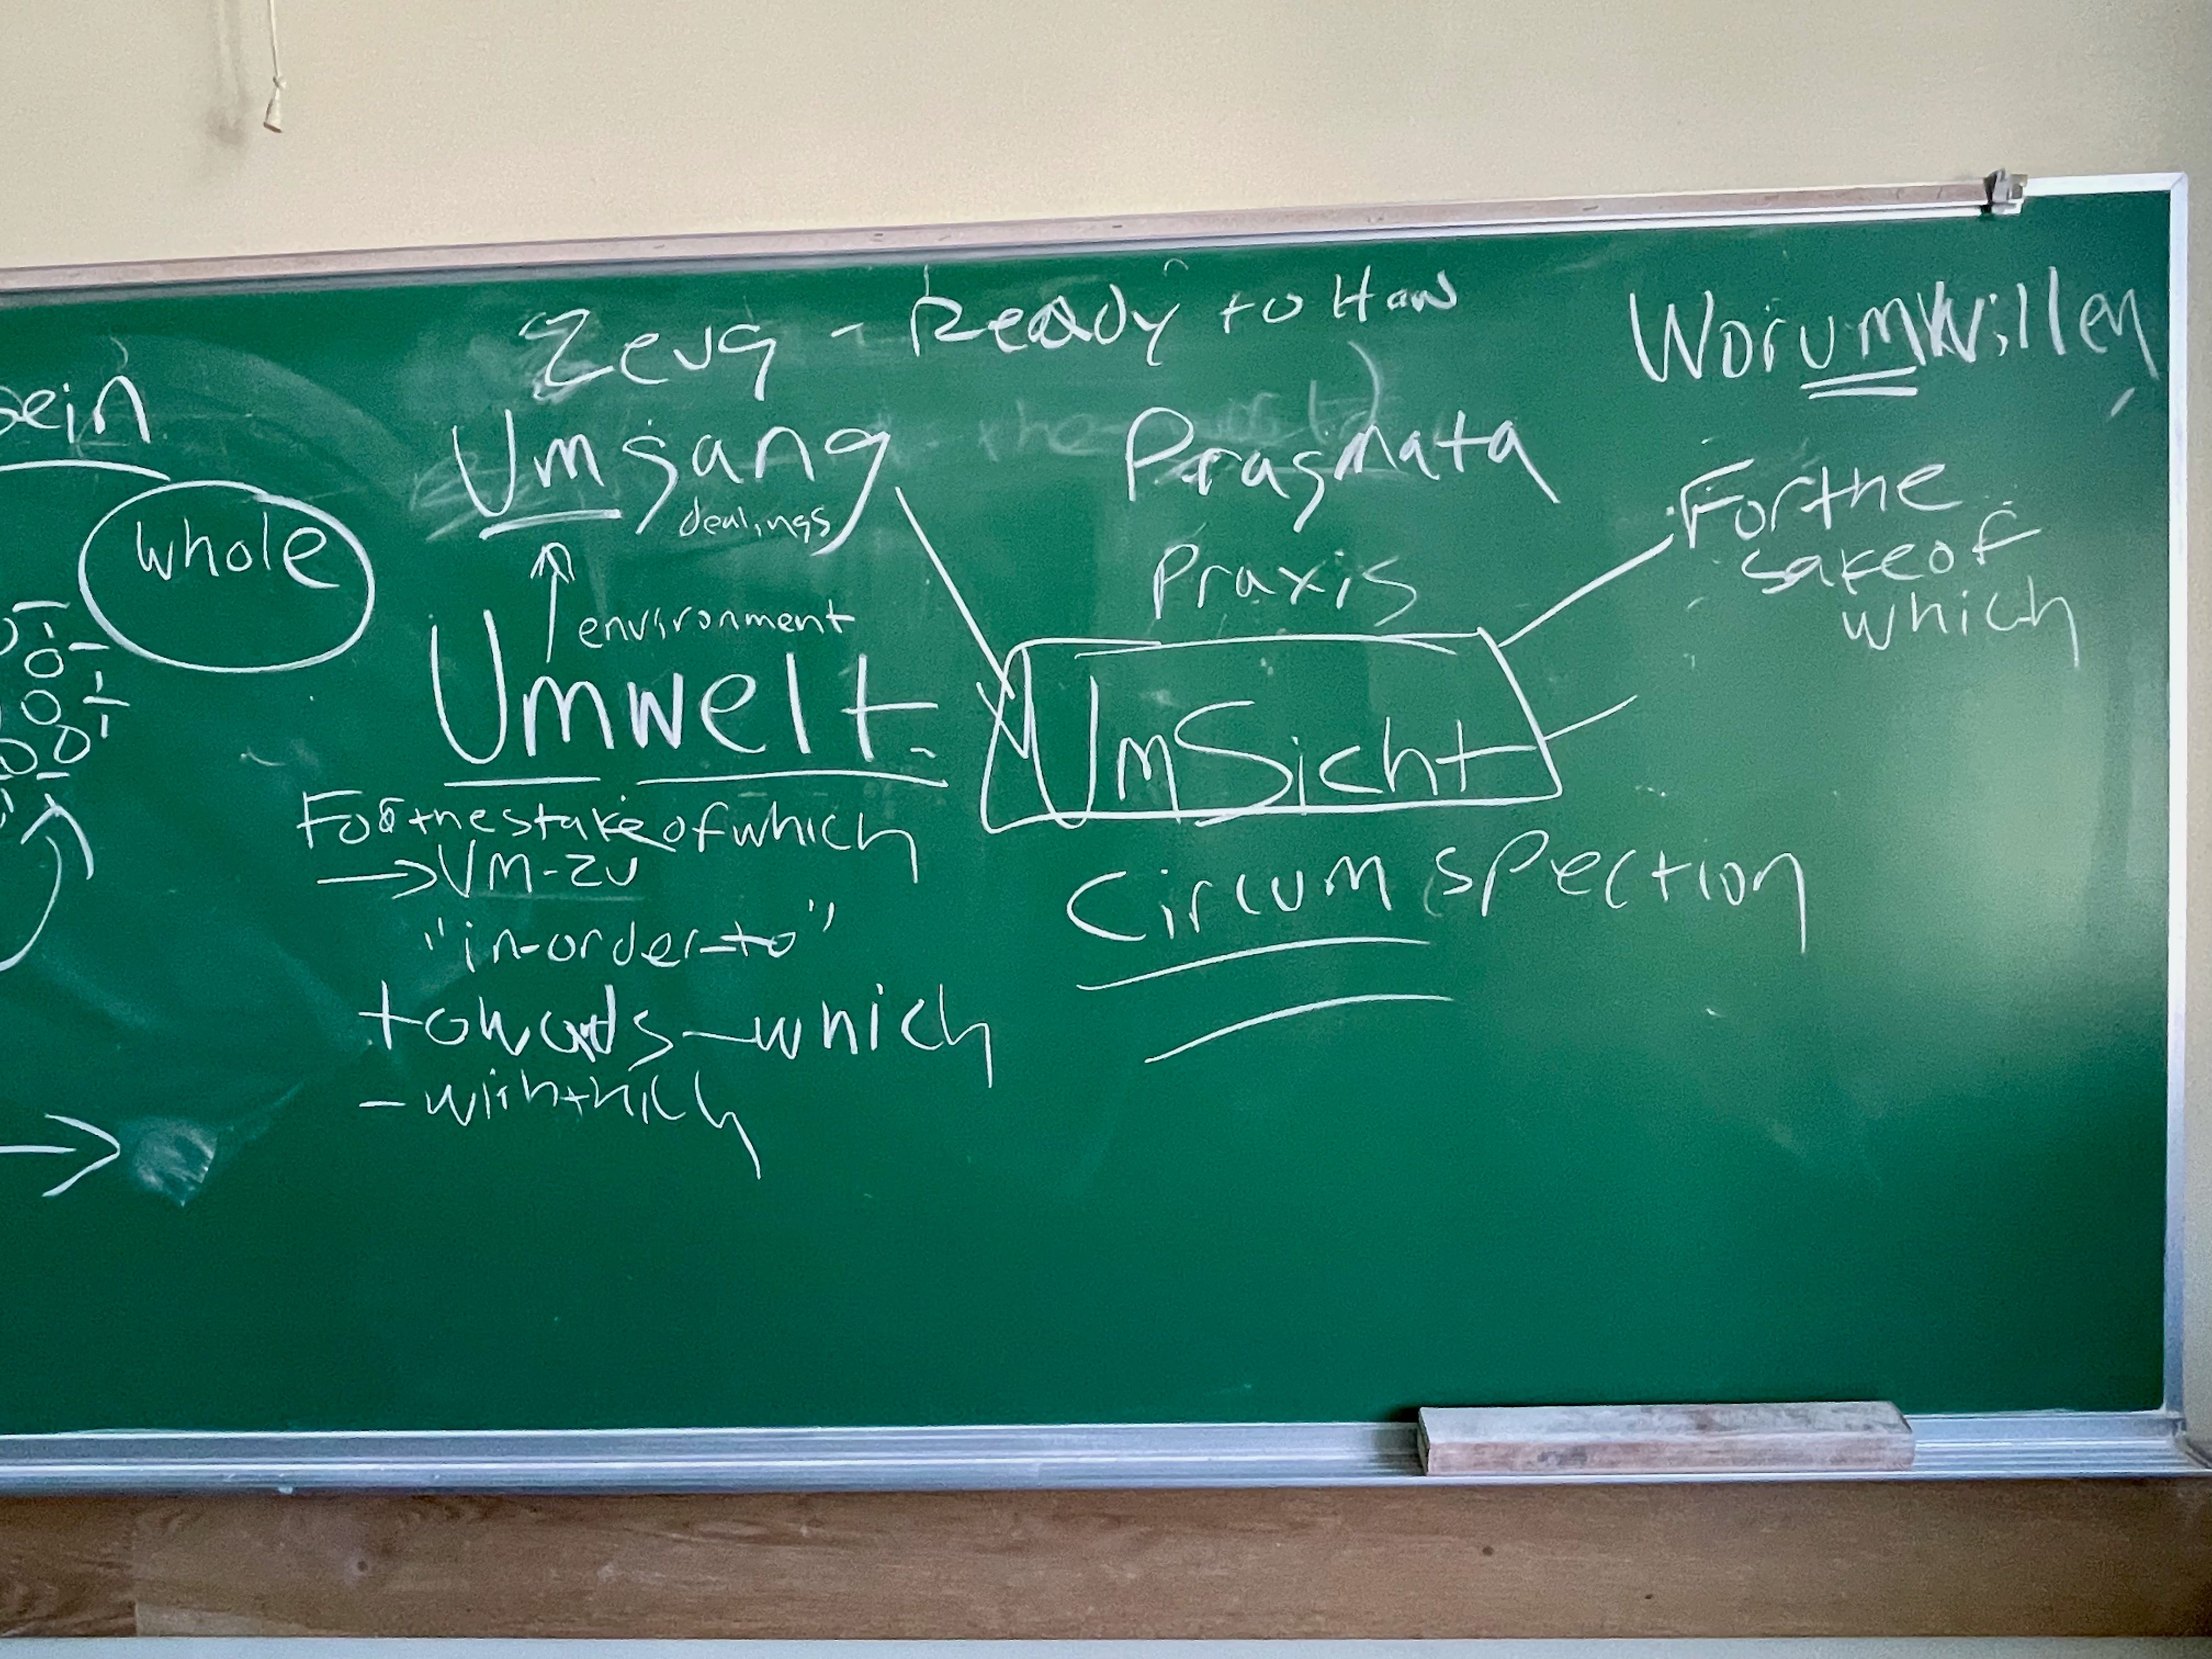 Zeug - Ready to Han
WorumWillen
sein
Umgang
dealings
Pragmata
Praxis
For the
sake of
which
whole
environment
Umwelt
UmSicht
For the stake of which
→ UM-ZU
"in-order-to"
Circumspection
towards-which